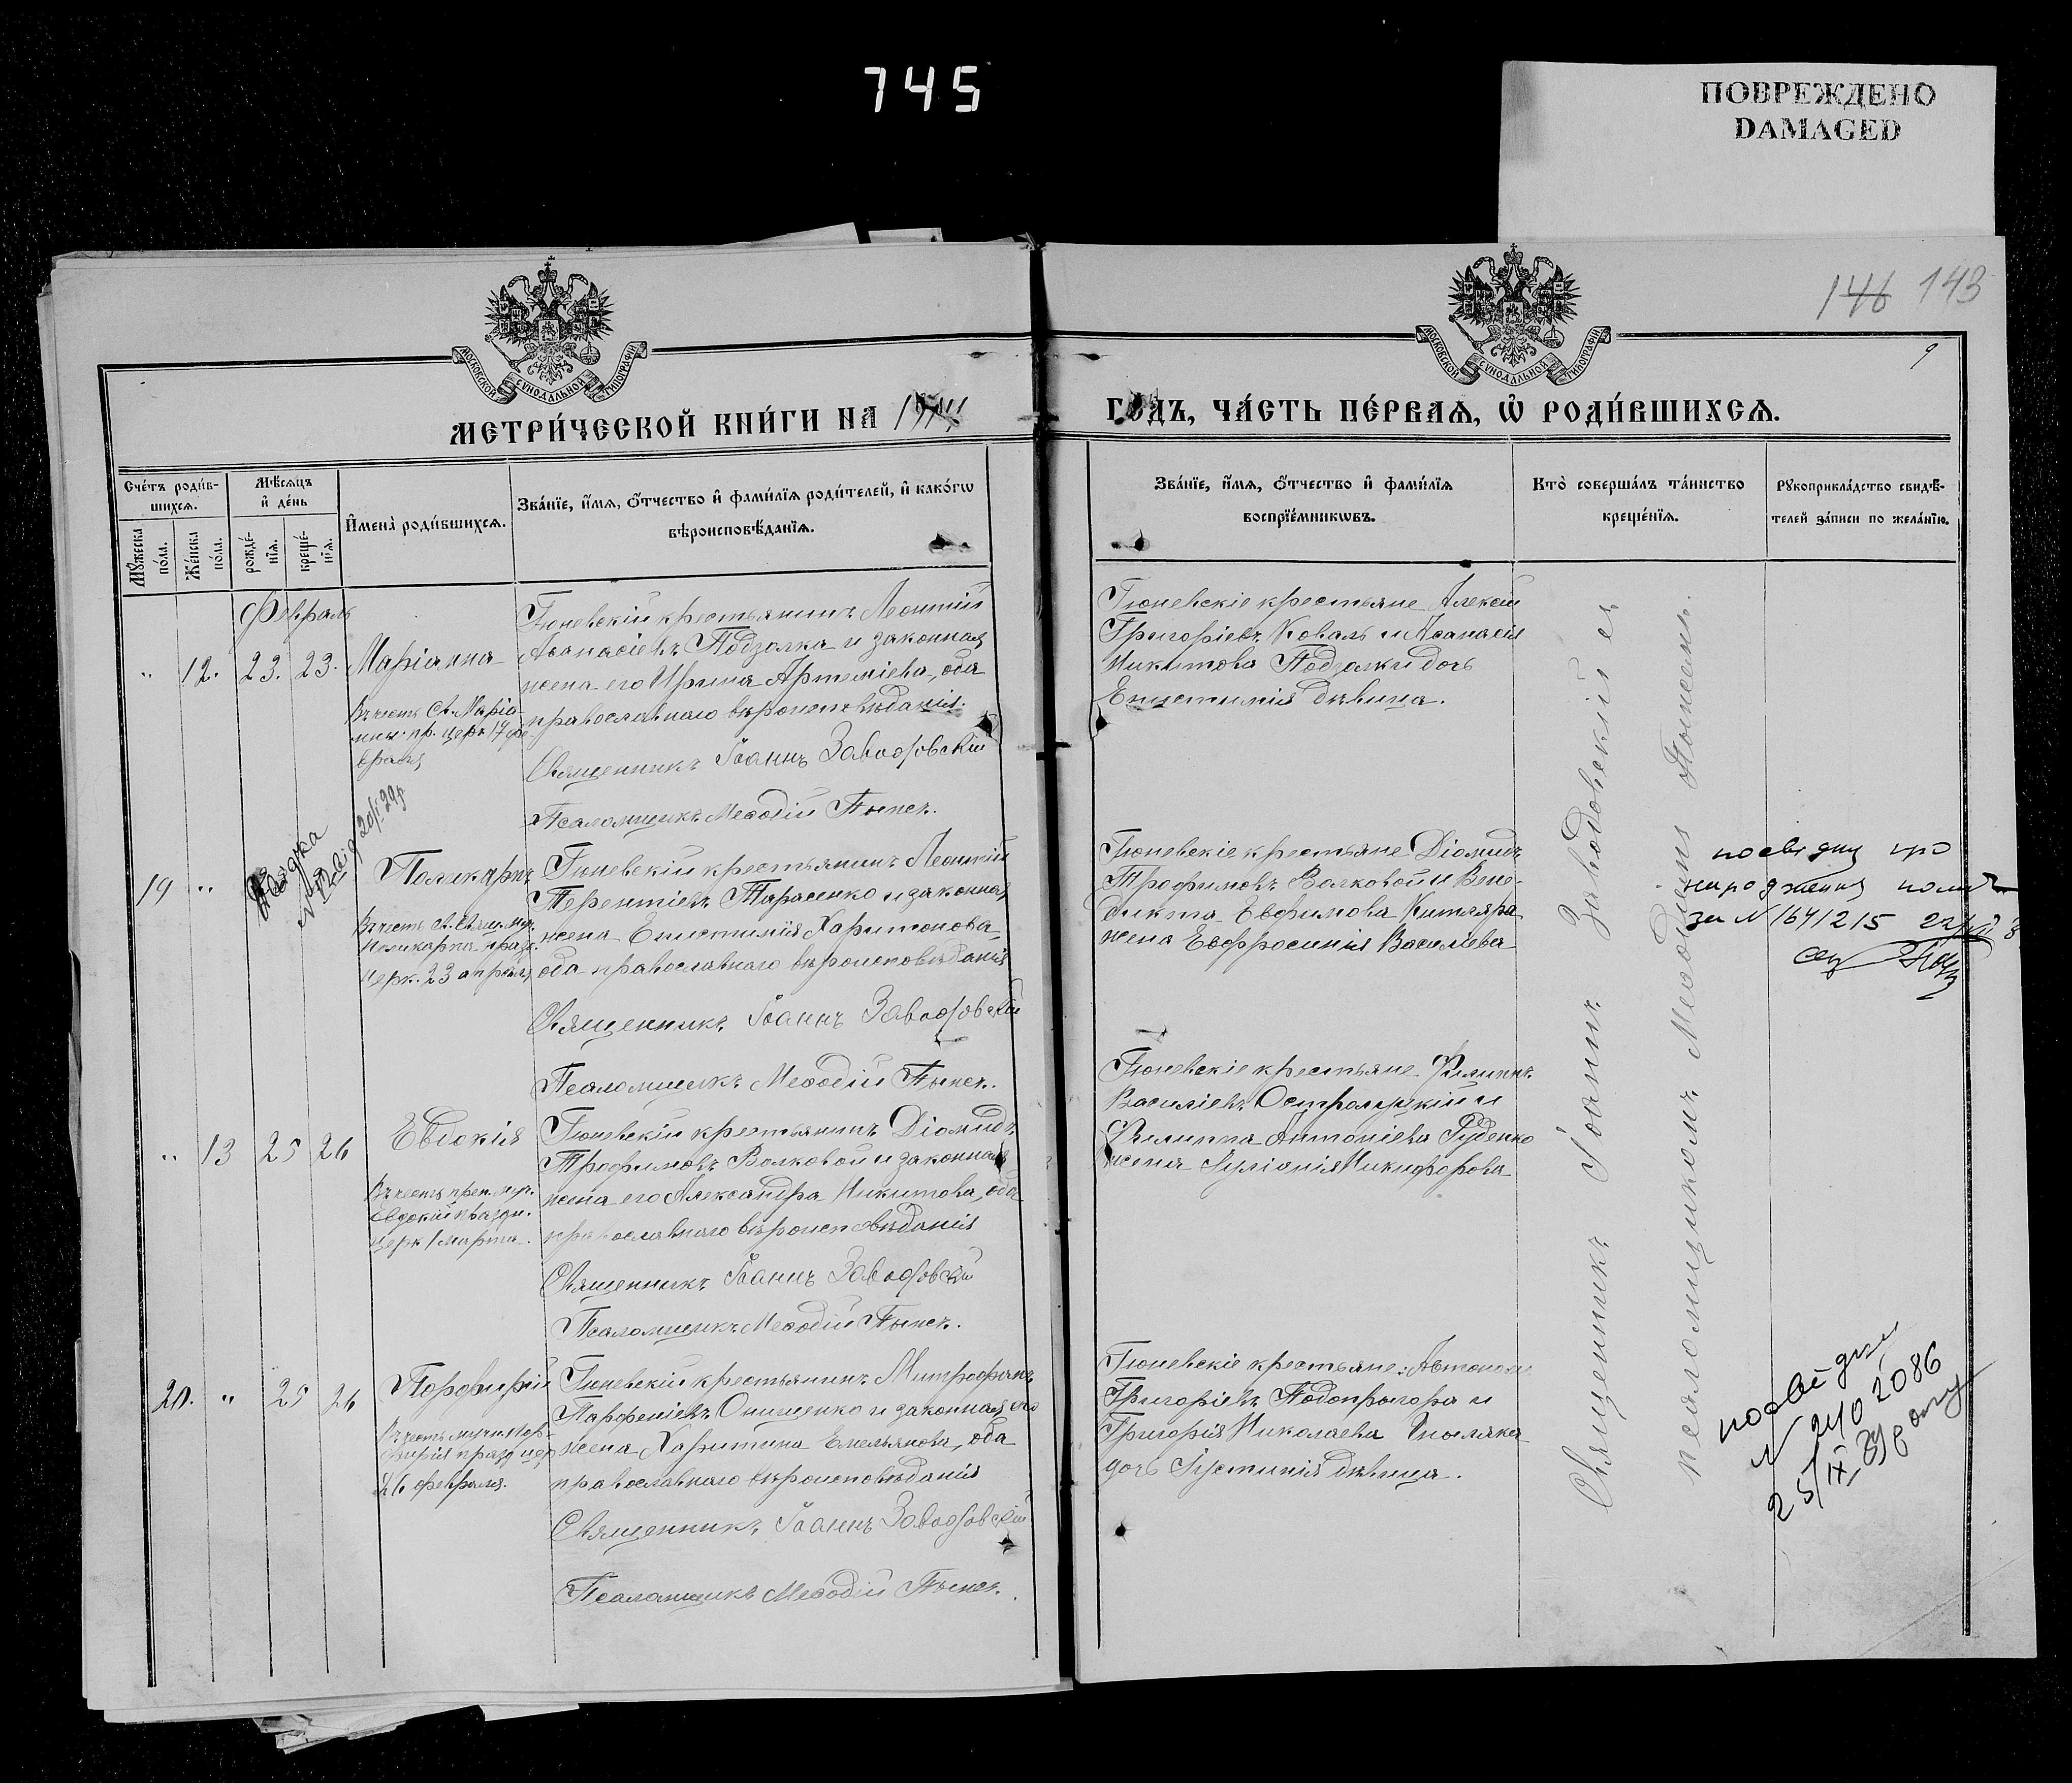 745
ПОВРЕЖДЕНО
DAMAGED
146 143
9
МОСКОВСКОЙ СѴНОДАЛЬНОЙ ТИПОГРАФІИ
МОСКОВСКОЙ СѴНОДАЛЬНОЙ ТИПОГРАФІИ
МЕТРИ́ЧЕСКОЙ КНИ́ГИ НА
ГО́ДЪ, ЧА́СТЬ ПЕ́РВАѦ, Ѡ҆ РОДИ́ВШИХСѦ.
Сче́тъ роди́в-
шихсѧ.
Мꙋ́жеска по́ла.
Же́нска по́ла.
Мѣ́сѧцъ
и҆ де́нь
рожде́-
нїѧ.
креще́-
нїѧ.
И҆мена̀ роди́вшихсѧ.
Зва́нїе, и҆́мѧ, ѻ҆́тчество и҆ фами́лїѧ роди́телей, и҆ како́гѡ
вѣроисповѣ́данїѧ.
Зва́нїе, и҆́мѧ, ѻ҆́тчество и҆ фами́лїѧ
воспрїе́мникѡвъ.
Кто̀ соверша́лъ та́инство
креще́нїѧ.
Рꙋкоприкла́дство свидѣ́-
телей за́писи по жела́нїю.
Февраль
12. 23. 23. Маріанна
Въ честь Св. Маріа-
нны пр. церк 17 фе
враля
Гюневскій крестьянинъ Леонтій
Аѳанасіевъ Подзолка и законная
жена его Ирина Артеміева, оба
православнаго вѣроисповѣданія.
Священникъ Іоаннъ Заводовскій
Псаломщикъ Меѳодій
Гюневскіе крестьяне Алексѣй
Григоріевъ Коваль и Аѳанасія
Никитова Подзолки дочь
Епистимія дѣвица.
19 " Поликарпъ
Въ честь Св. Свящ. муч.
Поликарпа празд.
церк. 23 апрѣля
Гюневскій крестьянинъ Леонтій
Терентіевъ Тарасенко и законная
жена Епистимія Харитонова
оба православнаго вѣроисповѣданія
Священникъ Іоаннъ Заводовскій
Псаломщикъ Меѳодій
Гюневскіе крестьяне Діомидъ
Трофимовъ Волковой и Вене-
дикта Евфимова Китляра
жена Евфросинія Василіева
народження
за N 1641215
" 13 25 26 Евдокія
Въ честь преп. муч.
Евдокіи праздн.
церк 1 марта.
Гюневскій крестьянинъ Діомидъ
Трофимовъ Волковой и законная
жена его Александра Никитова, оба
православнаго вѣроисповѣданія
Священникъ Іоаннъ Заводовскій
Псаломщикъ Меѳодій
Гюневскіе крестьяне Филиппъ
Василіевъ и
Филиппа Антоніева Руденко
жена Іуліанія Никифорова
20. " 25 26 Порфирій
Въ честь муч. Пор-
фирія празд цер
26 февраля.
Гюневскій крестьянинъ Митрофанъ
Парфеніевъ Онищенко и законная его
жена Харитина Емельянова, оба
православнаго вѣроисповѣданія
Священникъ Іоаннъ Заводовскій
Псаломщикъ Меѳодій
Гюневскіе крестьяне: Автономъ
Григоріевъ Подопригора и
Григорія Николаева
дочь Іустинія дѣвица.
Священникъ Іоаннъ Заводовскій съ
псаломщикомъ Меѳодіемъ
N 2102086